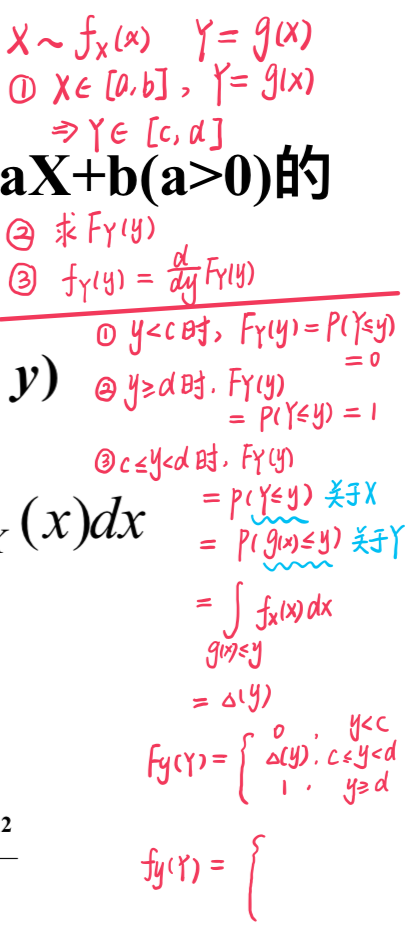 X ~ f_X(x) Y = g(X)
① X∈[a,b], Y= g(X)
⇒ Y∈ [c,d]
aX+b(a>0)的
② 求 F_Y(y)
③ f_Y(y) = d/dy F_Y(y)
① y<c时, F_Y(y) = P(Y≤y)
= 0
y)
② y≥d时, F_Y(y)
= P(Y≤y) = 1
③ c≤y<d时, F_Y(y)
= P(Y≤y) 关于X
(x)dx
= P(g(x)≤y) 关于Y
= ∫ f_X(x)dx
g(x)≤y
= △(y)
F_y(Y) = { 0, y<c
△(y), c≤y<d
1, y≥d
2
f_y(Y) = {